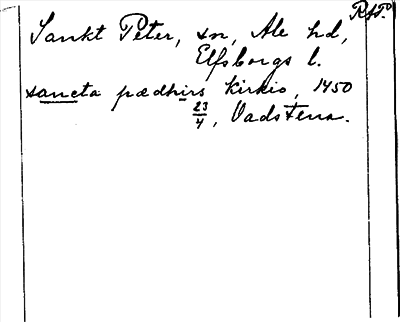 RfD.
Sankt Peter, sn, Ale hd,
Elfsborgs l.
sancta pædhirs kirkio, 1450
23/4, Vadstena.